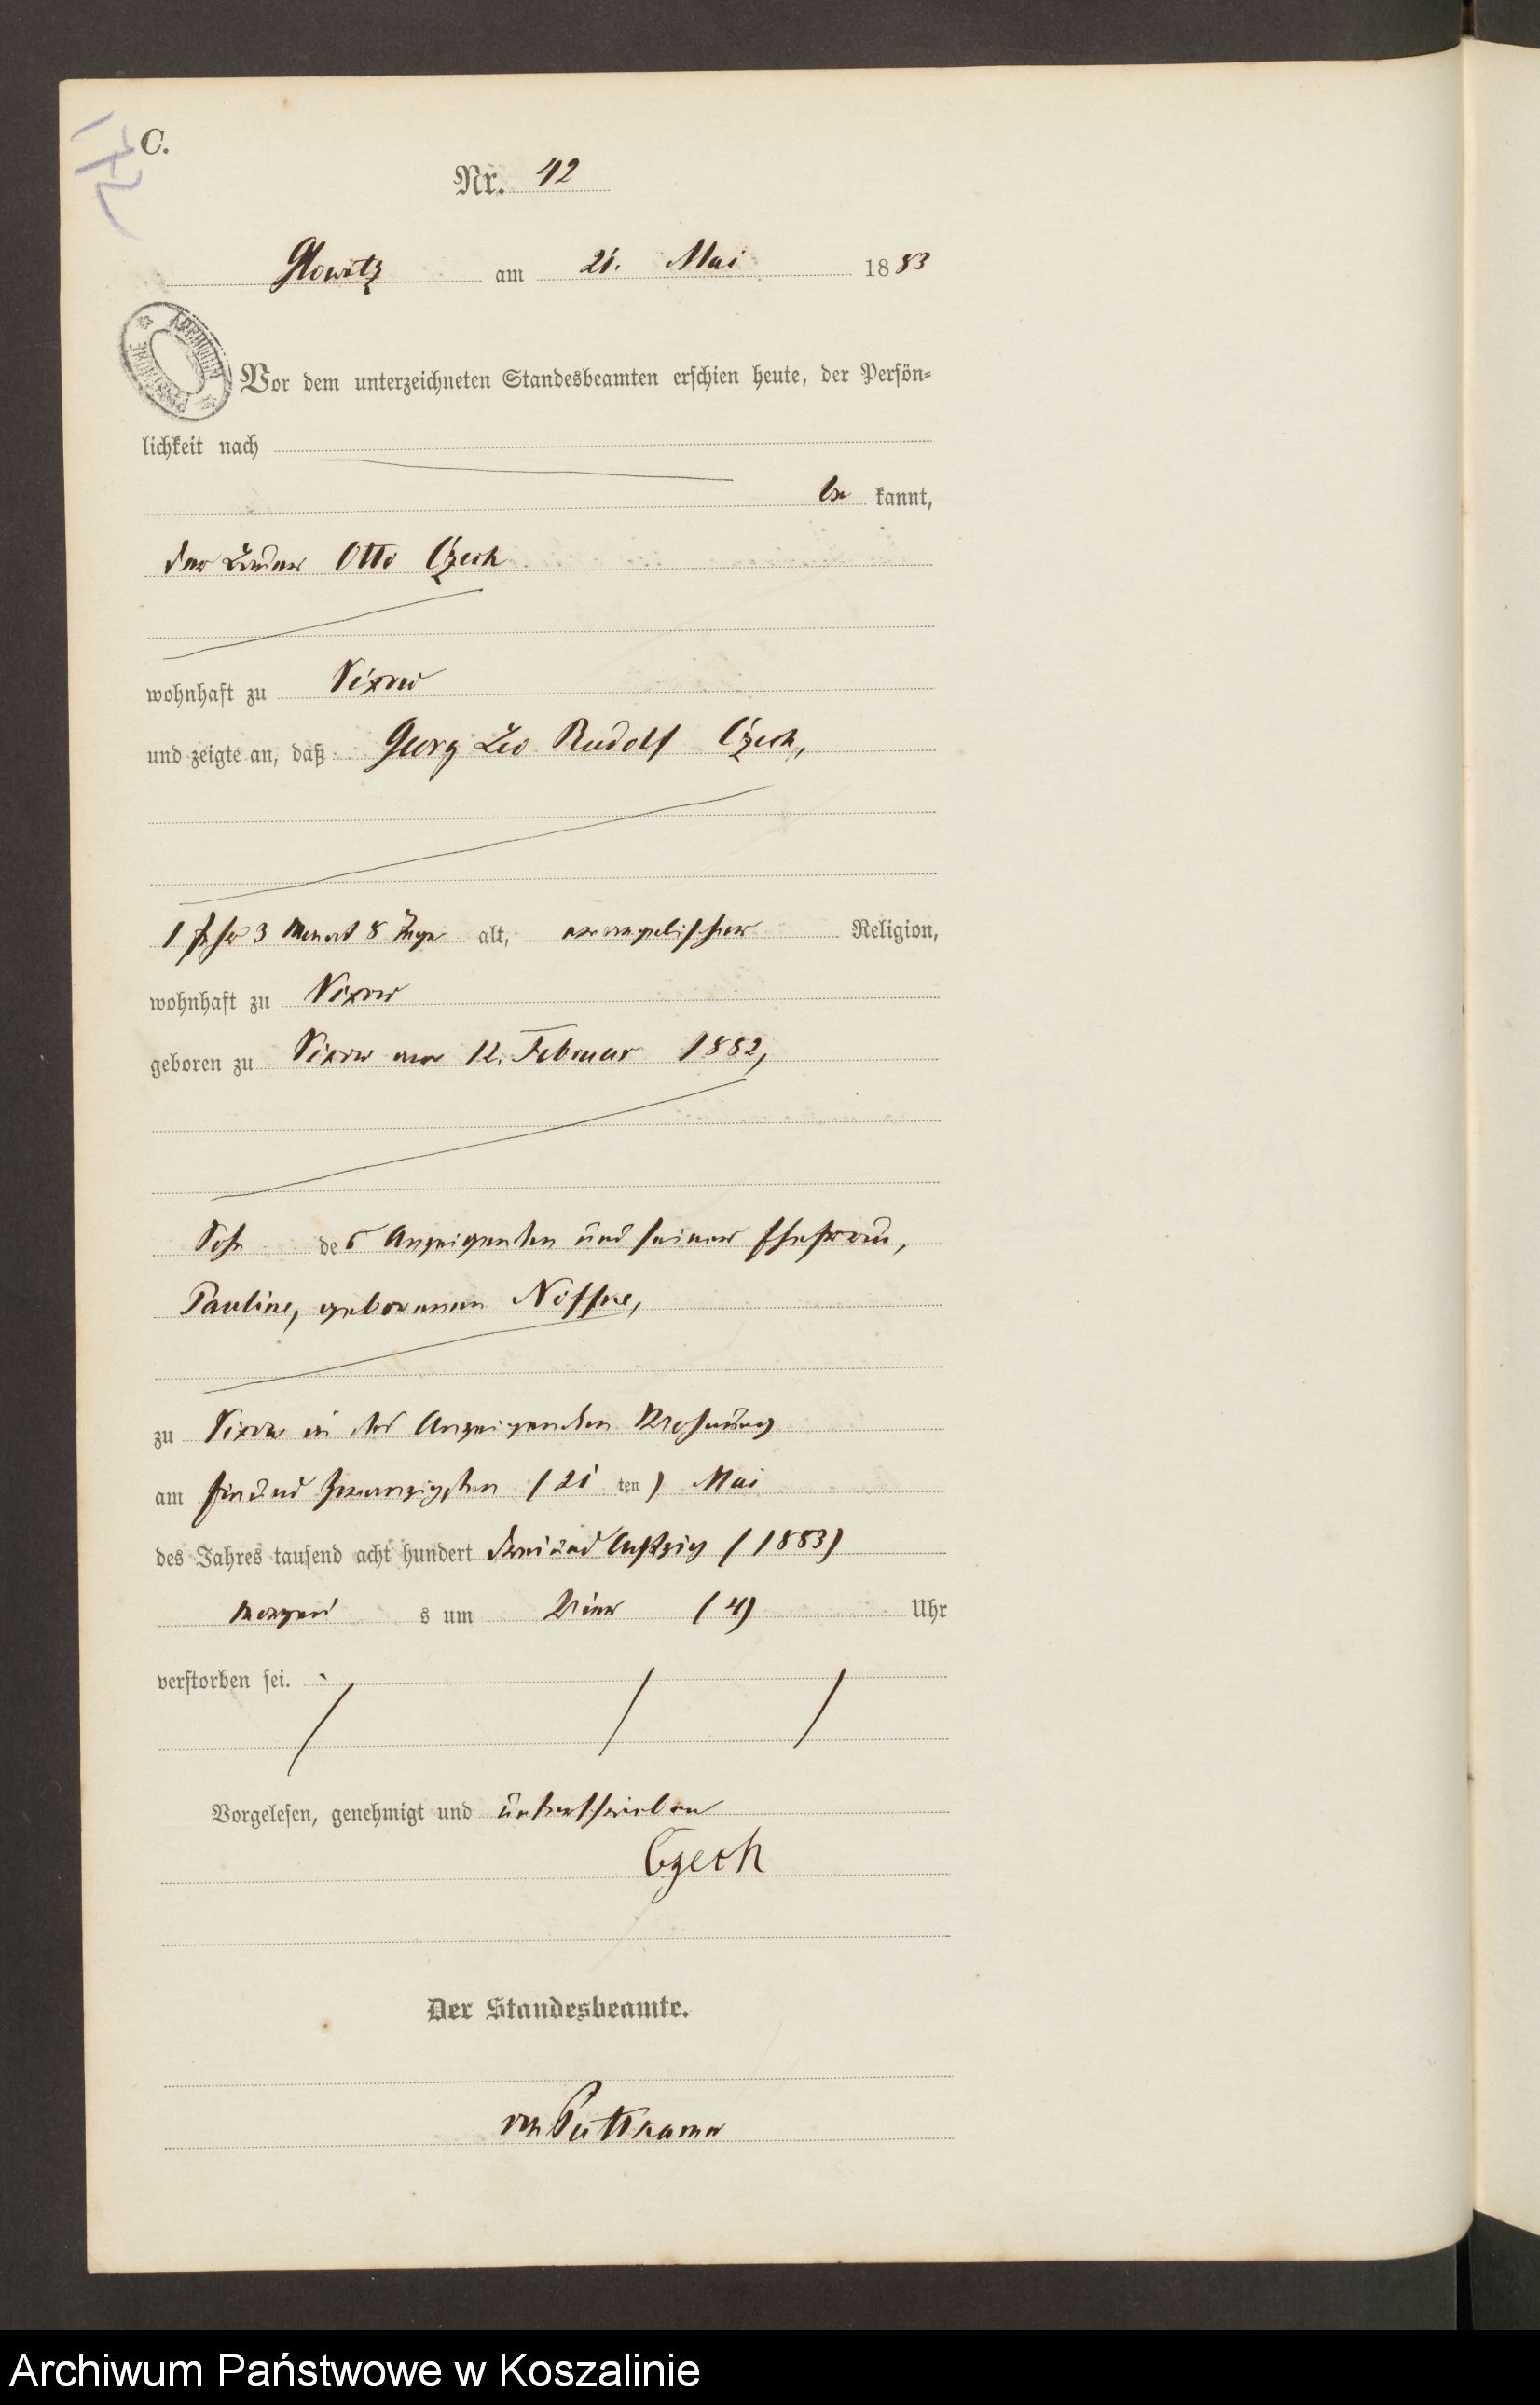 C.
Nr. 42
Glowitz am 21. Mai 1883
Vor dem unterzeichneten Standesbeamten erschien heute, der Persön-
lichkeit nach
be kannt,
der Otto Czech
wohnhaft zu Vixow
und zeigte an, daß Georg Leo Rudolf Czech,
1 Jahr 3 Monat 8 Tage alt, evangelischer Religion,
wohnhaft zu Vixow
geboren zu Vixow am 12. Februar 1882,
Sohn des Anzeigenden und seiner Ehefrau,
Pauline, geborenen Noffke,
zu Vixow in des Anzeigenden Wohnung
am ein und zwanzigsten (21 ten) Mai
des Jahres tausend acht hundert drei und Achtzig (1883)
Morgens um Vier (4) Uhr
verstorben sei.
Vorgelesen, genehmigt und unterschrieben
Czech
Der Standesbeamte.
von Puttkamer
Archiwum Państwowe w Koszalinie